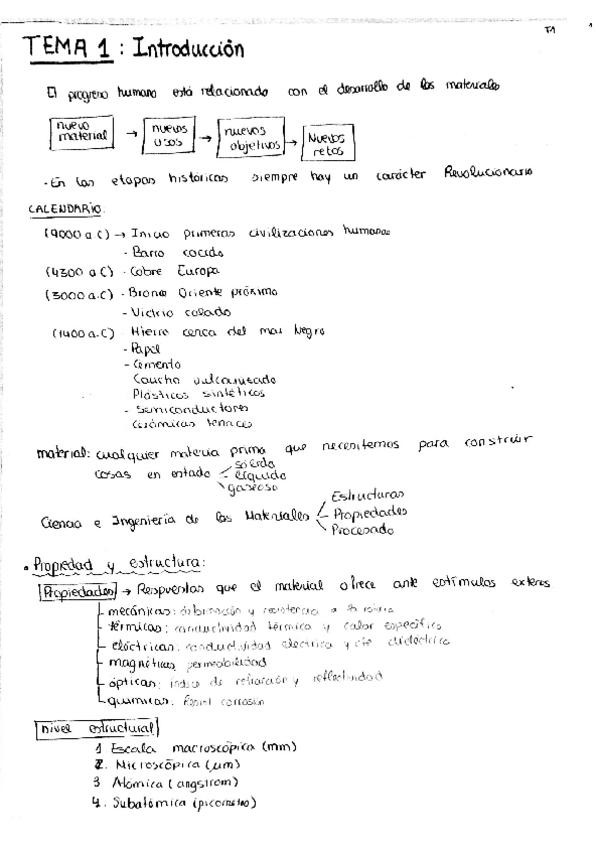 T1
TEMA 1 : Introducción
El progreso humano está relacionado con el desarrollo de los materiales
nuevo material → nuevos usos → nuevos objetivos → Nuevos retos
- En las etapas históricas siempre hay un carácter Revolucionario
CALENDARIO.
(9000 a C) → Inicio primeras civilizaciones humanas
- Barro cocido
(4300 a C) - Cobre Europa
(3000 a.C) - Bronce Oriente próximo
- Vidrio colado
(1400 a.C) - Hierro cerca del mar Negro
- Papel
- Cemento
Caucho vulcanizado
Plásticos sintéticos
- Semiconductores
Cerámicas
material: cualquier materia prima que necesitemos para construir
cosas en estado sólido
líquido
gaseoso
Ciencia e Ingeniería de los Materiales
Estructuras
Propiedades
Procesado
• Propiedad y estructura:
Propiedades → Respuestas que el material ofrece ante estímulos
mecánicas: deformación y resistencia a
térmicas: conductividad térmica y calor específico
eléctricas: conductividad eléctrica y cte dieléctrica
magnéticas: permeabilidad
ópticas: índice de refracción y reflectividad
químicas: corrosión
nivel estructural
1 Escala macroscópica (mm)
2. Microscópica (μm)
3 Atómica (angstrom)
4. Subatómica (picometro)